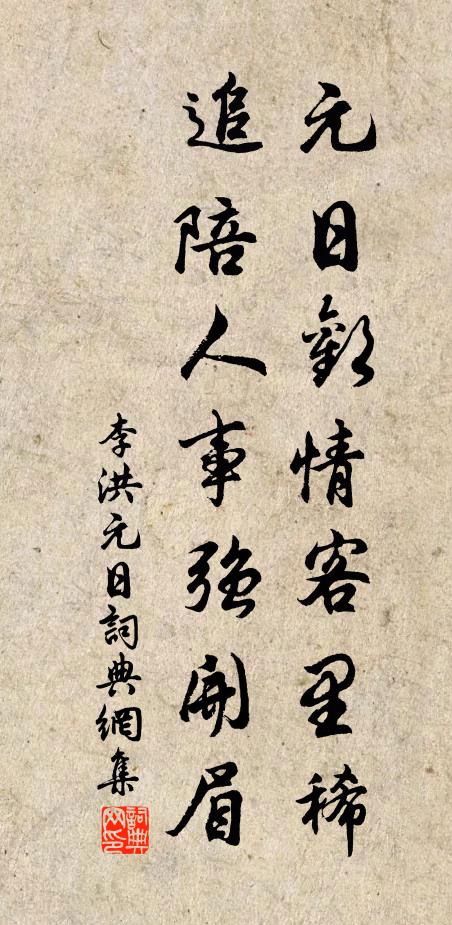 元日歡情客里稀
追陪人事強開眉
李洪元日詞典網集
詞典網印